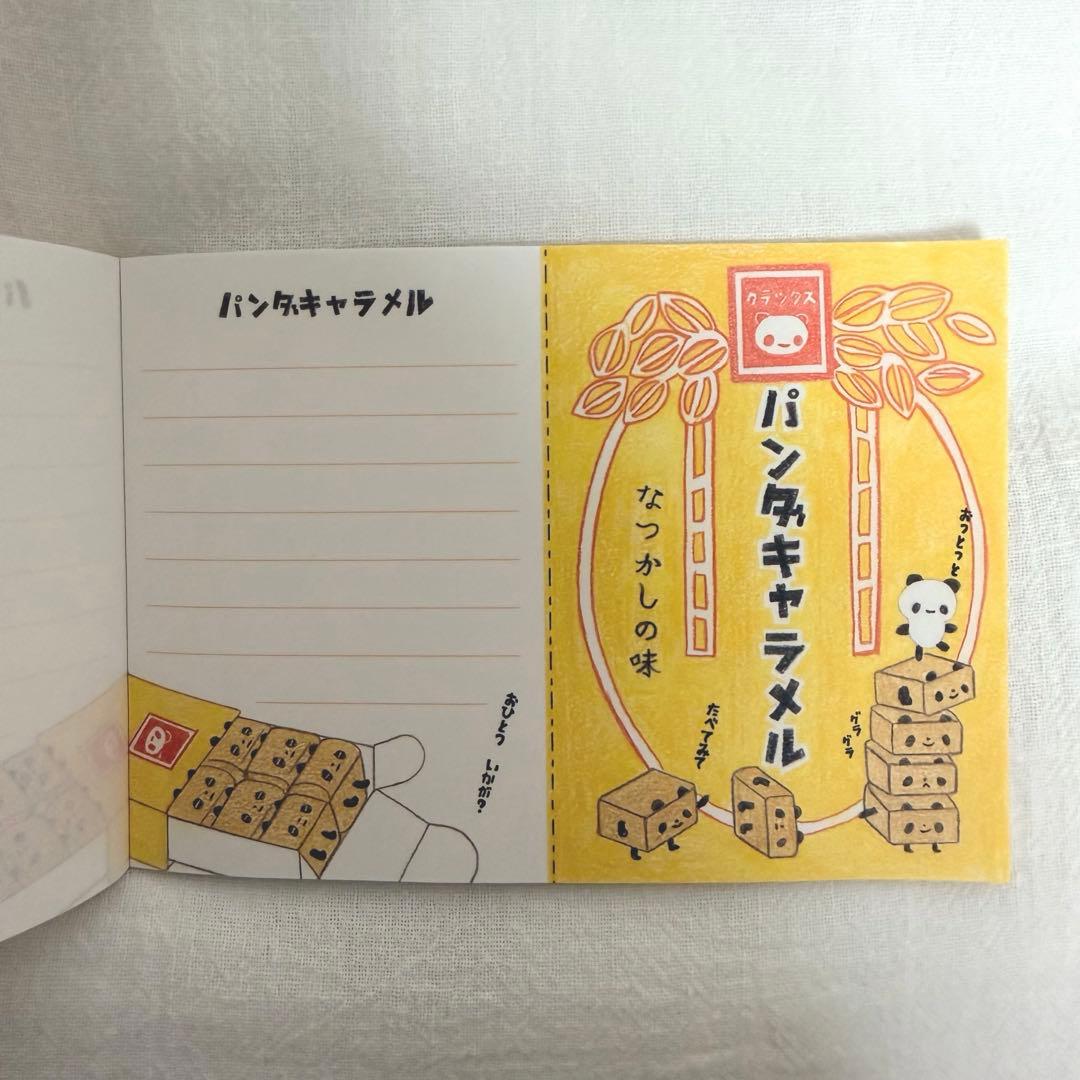 パンダキャラメル
おひとつ いかが?
クラックス
パンダキャラメル
なつかしの味
おっとっと
たべてみて
グラグラ